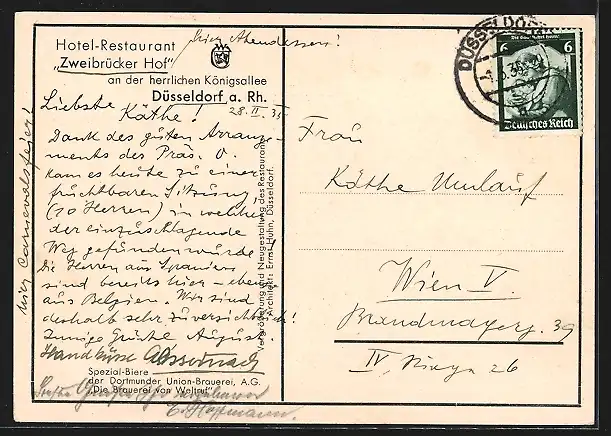 Hotel-Restaurant
„Zweibrücker Hof"
an der herrlichen Königsallee
Düsseldorf a. Rh.
hier Abendessen!
28. II. 35
Liebste
Käthe!
Dank des guten Arrange-
ments des Präs. V.
kam es heute zu einer
fruchtbaren Sitzung,
(10 Herren) in welcher
der einzuschlagende
Weg gefunden wurde.
Die Herren aus Spanien
sind bereits hier – ebenso
aus Belgien. Wir sind
deshalb sehr zuversichtlich!
Innige Grüße August.
Handküsse
hier Carnevalsfeier!
Vergrößerung und Neugestaltung des Restaurants
Architekt: Ernst Huhn, Düsseldorf.
Spezial-Biere
der Dortmunder Union-Brauerei, A.G.
"Die Brauerei von Weltruf"
Hoffmann.
DÜSSELDORF
6 6
Die Saar kehrt heim!
Deutsches Reich
Frau
Käthe Umlauf
Wien V.
Brandmayerg. 39
IV. Stiege 26